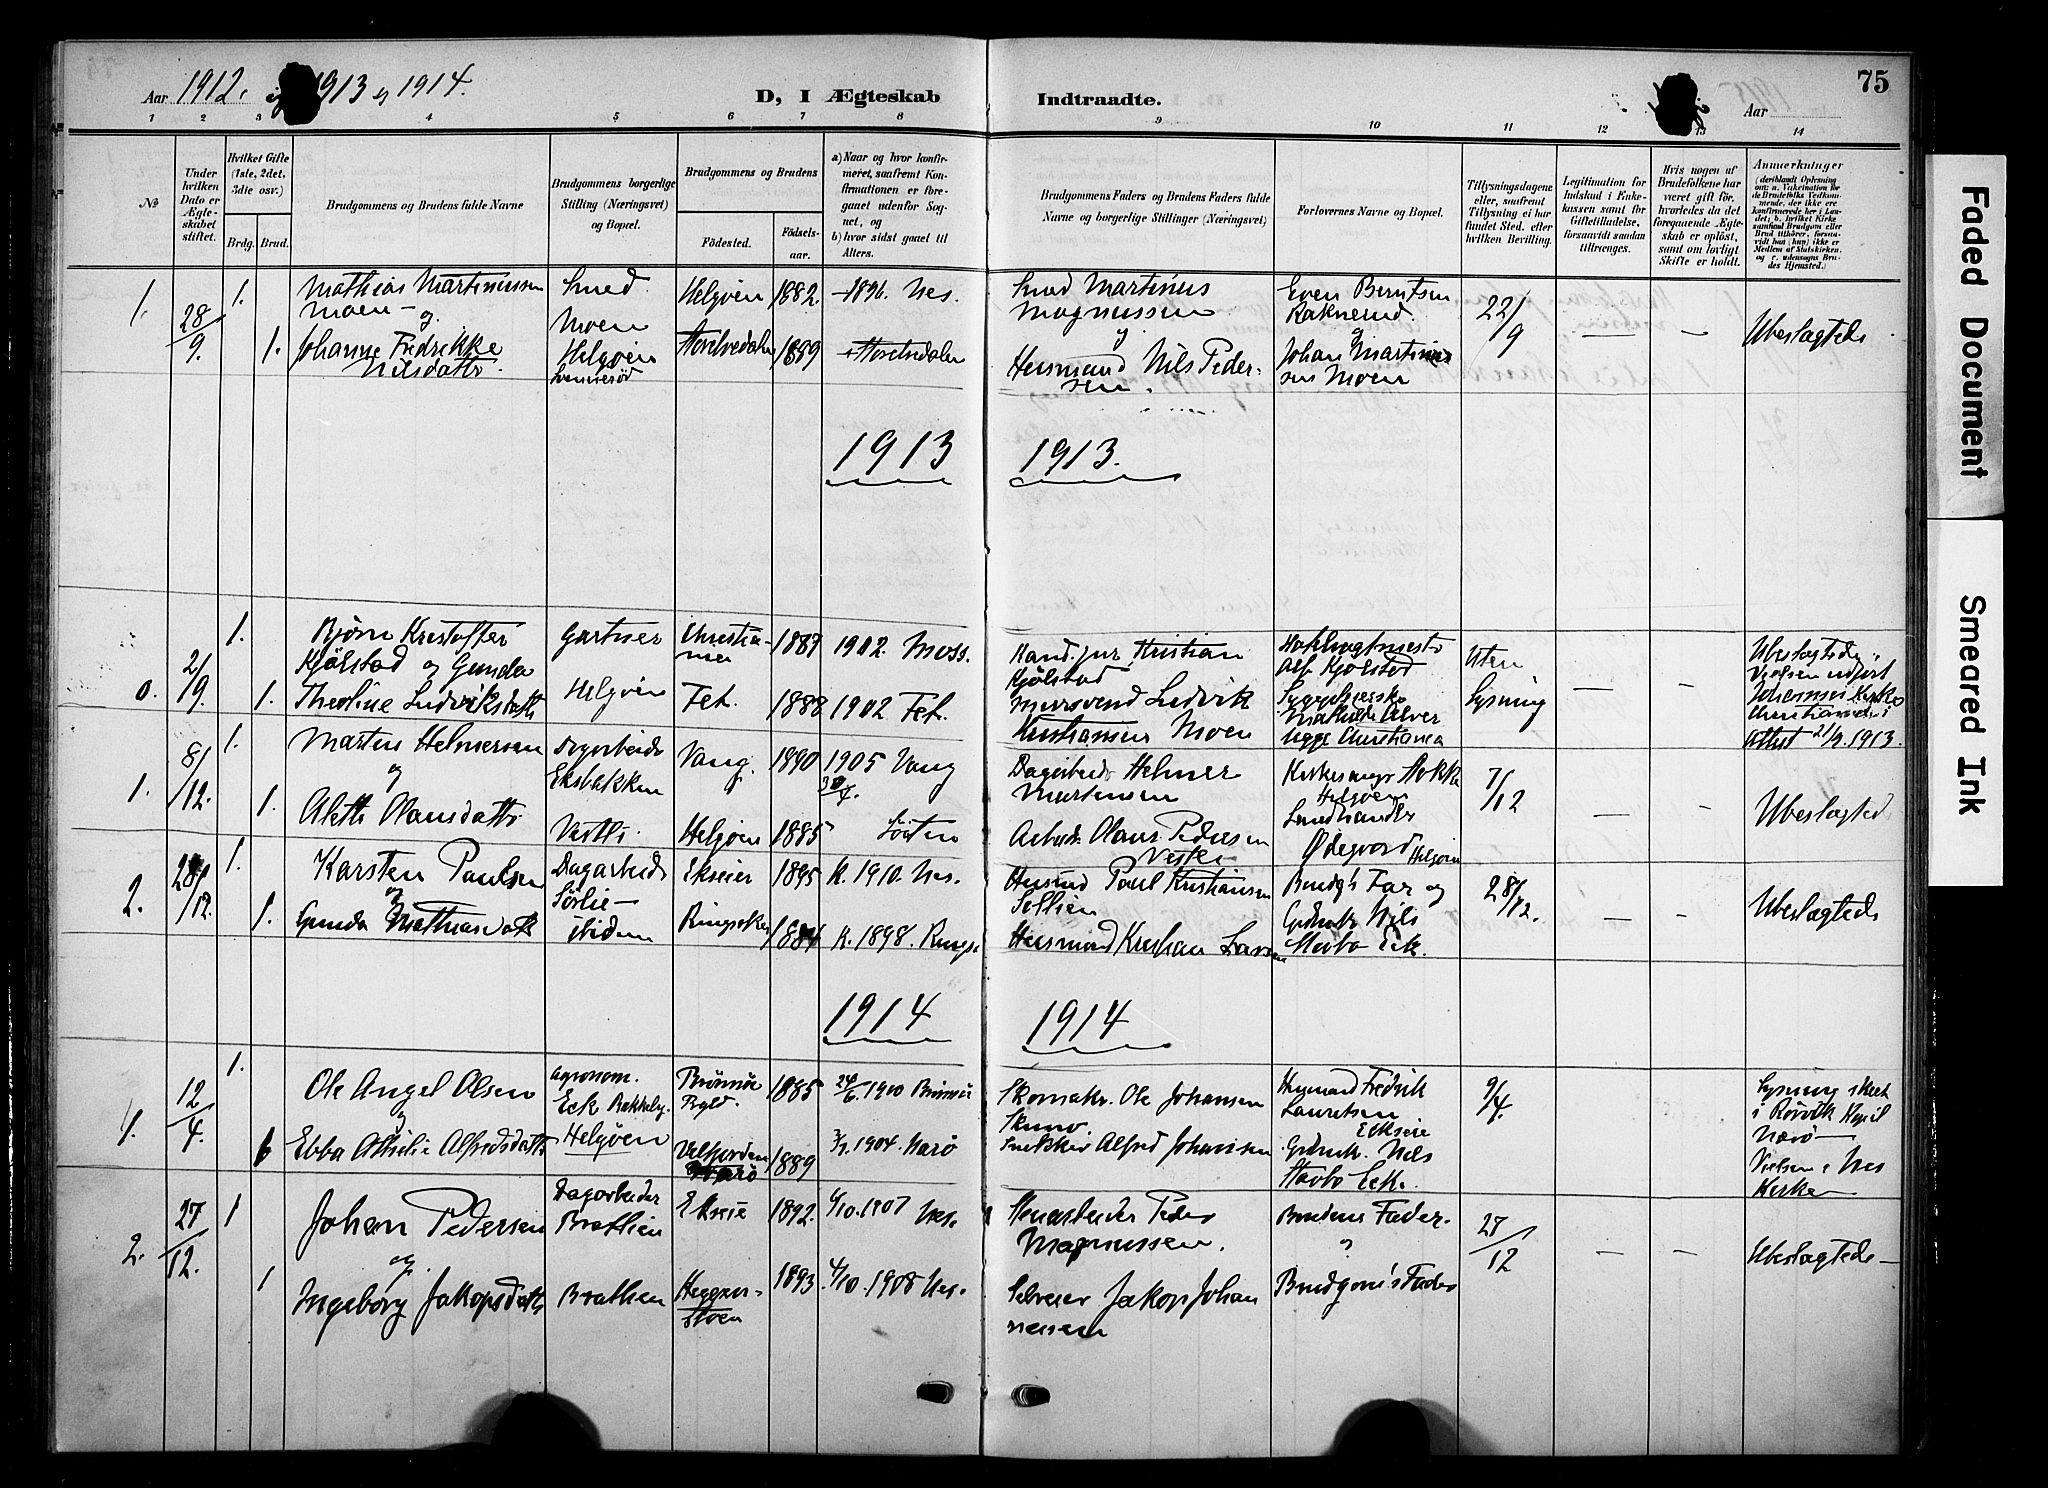 Aar 1912. og 1913 og 1914.
D, I Ægteskab Indtraadte.
Aar
75
1 2 3 4 5 6 7 8 9 10 11 12 13 14
№
Under hvilken Dato er Ægteskabet stiftet.
Hvilket Gifte (1ste, 2det, 3die osv.)
Brdg. Brud.
Brudgommens og Brudens fulde Navne
Brudgommens borgerlige Stilling (Næringsvei) og Bopæl.
Brudgommens og Brudens
Fødested. Fødselsaar.
a) Naar og hvor konfirmeret, saafremt Konfirmationen er foregaaet udenfor Sognet, og
b) hvor sidst gaaet til Alters.
Brudgommens Faders og Brudens Faders fulde Navne og borgerlige Stillinger (Næringsvei)
Forlovernes Navne og Bopæl.
Tillysningsdagene eller, saafremt Tillysning ei har fundet Sted, efter hvilken Bevilling.
Legitimation for Indskud i Enkekassen samt for Giftetilladelse, forsaavidt saadan tiltrænges.
Hvis nogen af Brudefolkene har været gift før, hvorledes da det foregaaende Ægteskab er opløst, samt om lovligt Skifte er holdt.
Anmerkninger
1. 28/9. 1. 1.
Mathias Martinussen
Moen og
Johanne Fredrikke
Nilsdatter
Smed
Moen
Helgøen
Helgøen 1882. 1896. Nes.
1889
Smed Martinus
Magnussen
og
Husmand Nils Pedersen.
Even Berntsen
og
Johan Martinussen Moen
22/9
—
—
Ubeslægtede
1913 1913.
0. 2/9. 1. 1.
Bjørn Kristoffer
Kjølstad og Gunda
Theoline Ludviksdatter
Gartner
Helgøen
Christiania 1887 1902. Moss.
Fet. 1888 1902 Fet.
Kand. jur. Kristian
Kjølstad
Murersvend Ludvik
Kristiansen Moen
Alf Kjølstad
Sygepleierske
Mathilde Alver
begge Christiania
Uten
Lysning
— —
Ubeslægtede
Vielsen udført
Johannes Kirke
Christiania
Attest 2/9. 1913.
1. 8/12. 1. 1.
Marten Helmersen
og
Alette Olausdatter
Dagarbeider
Eksbakken
Vestli.
Vang. 1890 1905 Vang
Helgøen 1885 Løiten
Dagarbeider Helmer
Martensen
Arbeider Olaus Pedersen
Vestli
Kirkesanger Stokke
Helgøen
Landhandler
Ødegaard Helgøen
7/12
— —
Ubeslægtede
2. 28/12. 1. 1.
Karsten Paulsen
og
Gunda Mathiasdatter
Dagarbeider
Sørlie
ibidem
Ekseier 1895 K. 1910. Nes.
Ringsaker 1884 K. 1898. Ringsaker
Husmand Paul Kristiansen
Husmand Kristian Larsen
Brudg's Far og
Gaardbruker Nils
Stavbo Eck.
28/12.
— —
Ubeslægtede
1914 1914
1. 12/4. 1. 1
Ole Angel Olsen
og
Ebba Othilie Alfredsdatter
Agronom.
Eck
Helgøen
Brønnø 1885 24/6. 1900 Brønnø
1889 1904. Nærø
Skomaker Ole Johansen
Snekker Alfred Johansen
Husmand Fredrik
Lauritsen
Gaardbruker Nils
Stavbo Eck.
9/4.
Lysning skeet
i Rørvik Kapel
Nærø —
Vielsen i Nes
Kirke
2. 27/12. 1 1
Johan Pedersen
og
Ingeborg Jakopsdatter
Dagarbeider
Bratlien
Bratlien
Ekseie 1892. 6/10. 1907 Nes.
1893. 4/10. 1908 Nes.
Peder
Magnussen.
Selveier Jakop Johannessen
Brudens Fader
og
Brudgom's Fader
27/12
— —
Ubeslægtede —
Faded Document
Smeared Ink